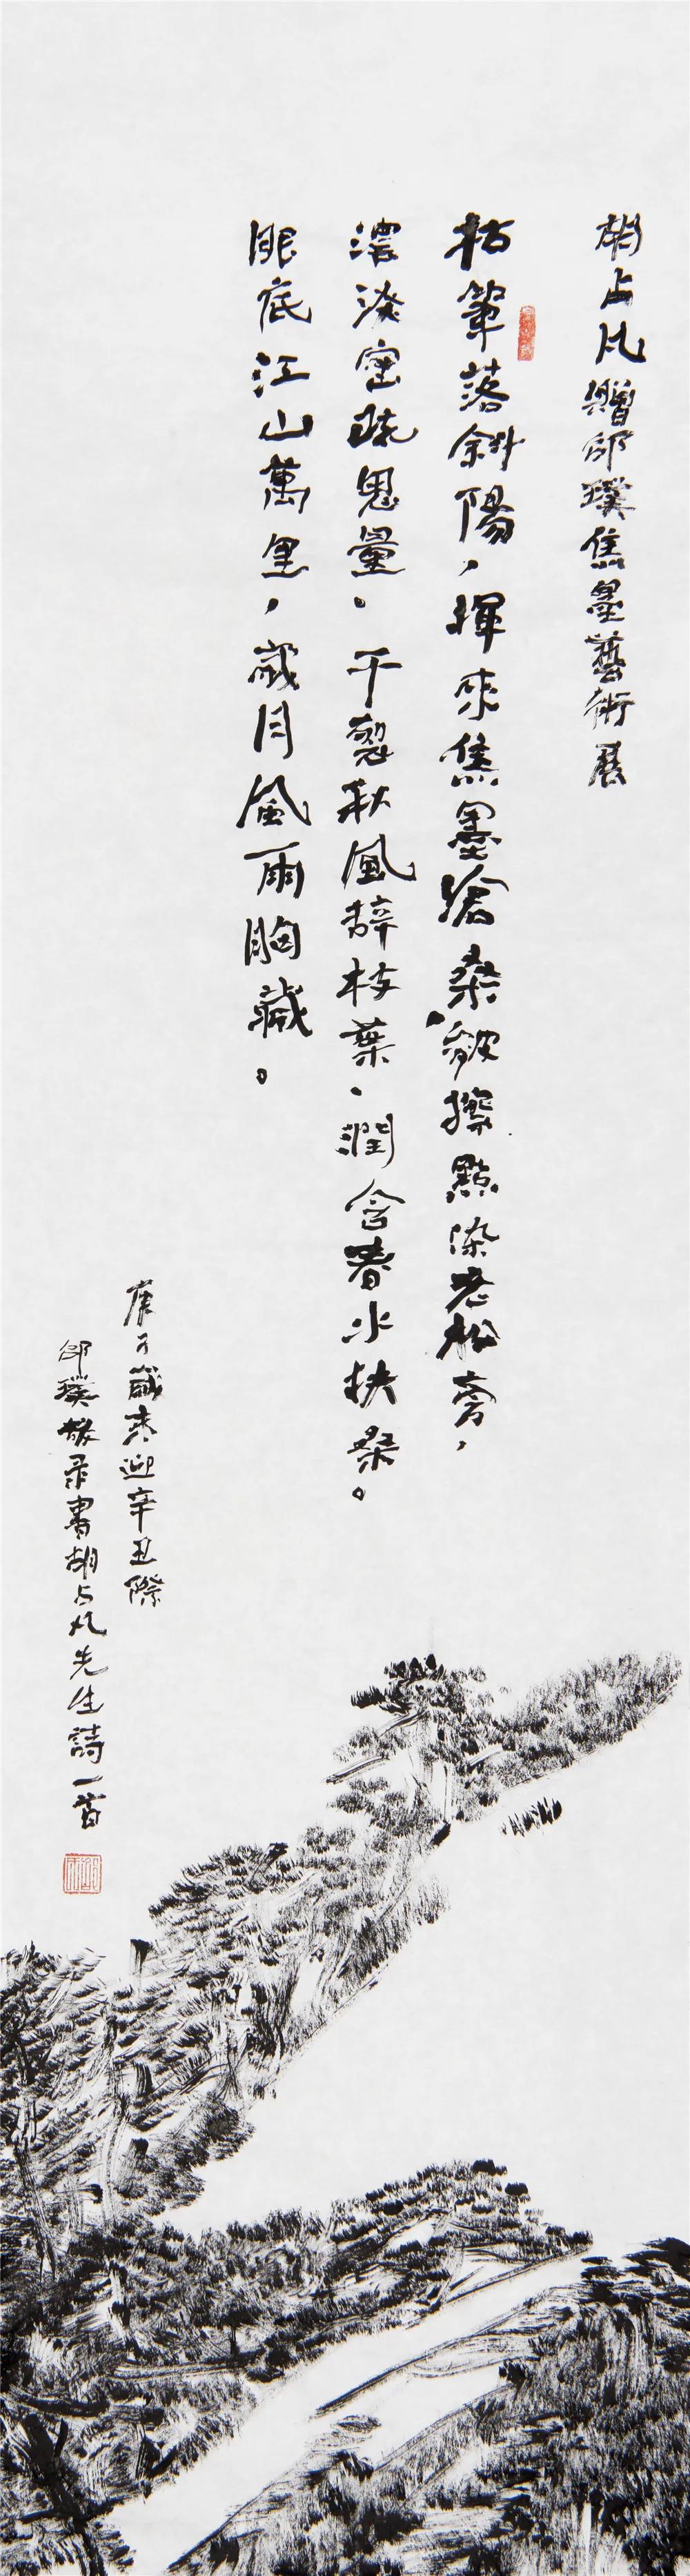 胡占凡贈邵璞焦墨藝術展
枯筆落斜陽，揮來焦墨滄桑皴擦點染老松旁，
濃淡密疏思量。千裂秋風辭枝葉、潤含春水扶桑。
眼底江山萬里，歲月風雨胸藏。
庚子歲末迎辛丑際
邵璞敬录書胡占凡先生詩一首